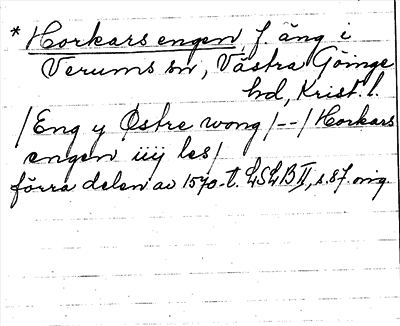 * Horkars engen, f äng i
Verums sn, Västra Göinge
hd, Krist. l.
/Eng y Østre wong/--/Horkars
engen iiij les/
förra delen av 1570-t. LSLB II, s. 87. orig.